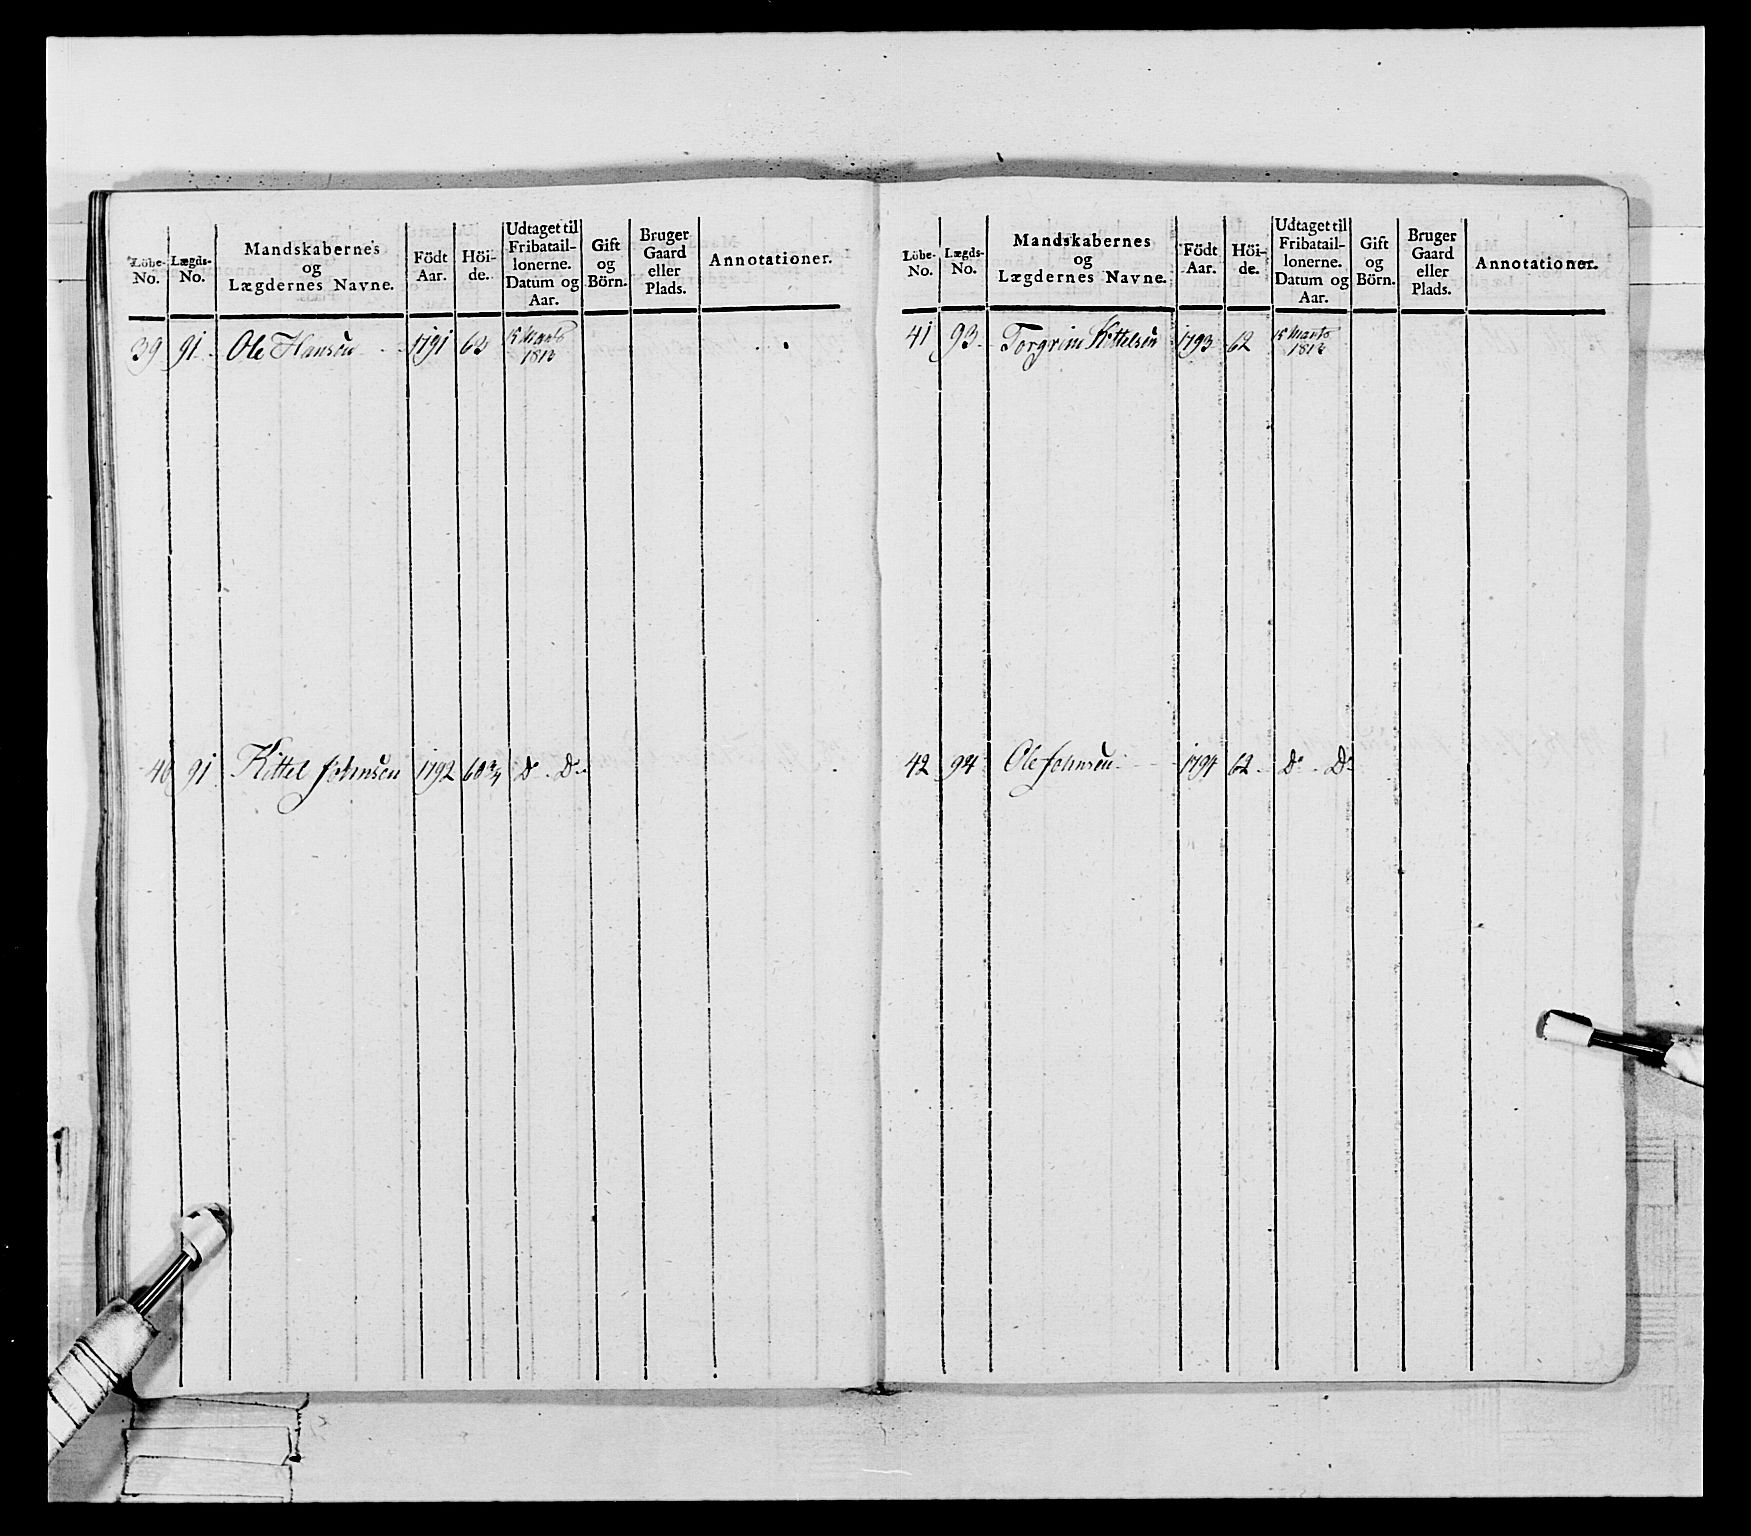 Löbe-No. Lægds-No. Mandskabernes og Lægdernes Navne. Födt Aar. Höi-de. Udtaget til Fribatail-lonerne. Datum og Aar. Gift og Börn. Bruger Gaard eller Plads. Annotationer.
39 91 Ole Hansen 1791 63 15 Marts 1813
40 91 Kittel Johnsen 1792 60 3/4 Do Do
Löbe-No. Lægds-No. Mandskabernes og Lægdernes Navne. Födt Aar. Höi-de. Udtaget til Fribatail-lonerne. Datum og Aar. Gift og Börn. Bruger Gaard eller Plads. Annotationer.
41 93 Torgrim Kittelsen 1793 62 15 Marts 1813
42 94 Ole Johnsen 1794 62 Do Do